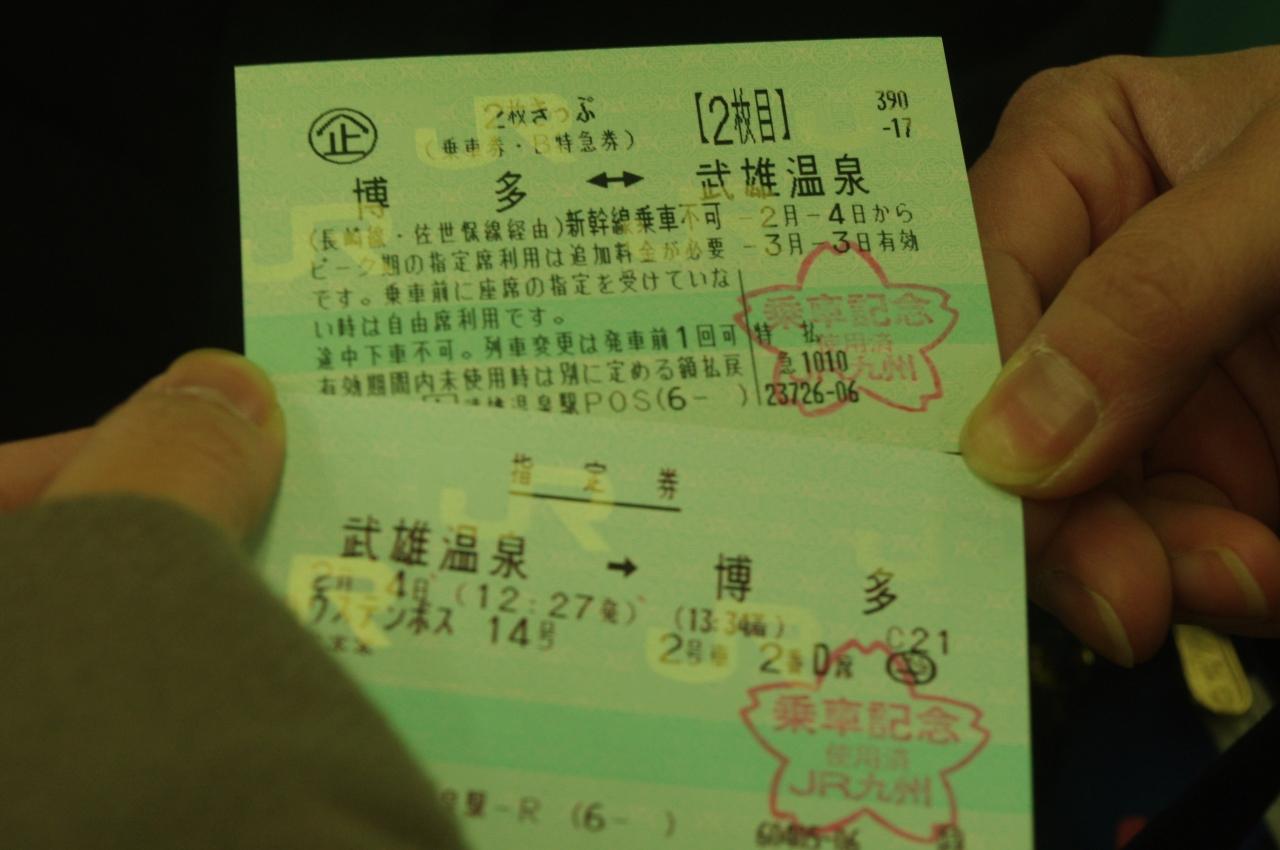 企 2枚きっぷ 【2枚目】 390
(乗車券・B特急券) -17
博多 ↔ 武雄温泉
(長崎線・佐世保線経由)新幹線乗車不可 -2月-4日から
ピーク期の指定席利用は追加料金が必要 -3月-3日有効
です。乗車前に座席の指定を受けていな
い時は自由席利用です。
途中下車不可。列車変更は発車前1回可 特
有効期間内未使用時は別に定める額払戻 急1010
武雄温泉駅POS(6- ) 23726-06
乗車記念
使用済
JR九州
指定券
武雄温泉 → 博多
2月 4日 (12:27発) (13:34着) C21
ウステンボス 14号 2号車 2番D席
泉駅-R (6- )
60405-06
乗車記念
使用済
JR九州